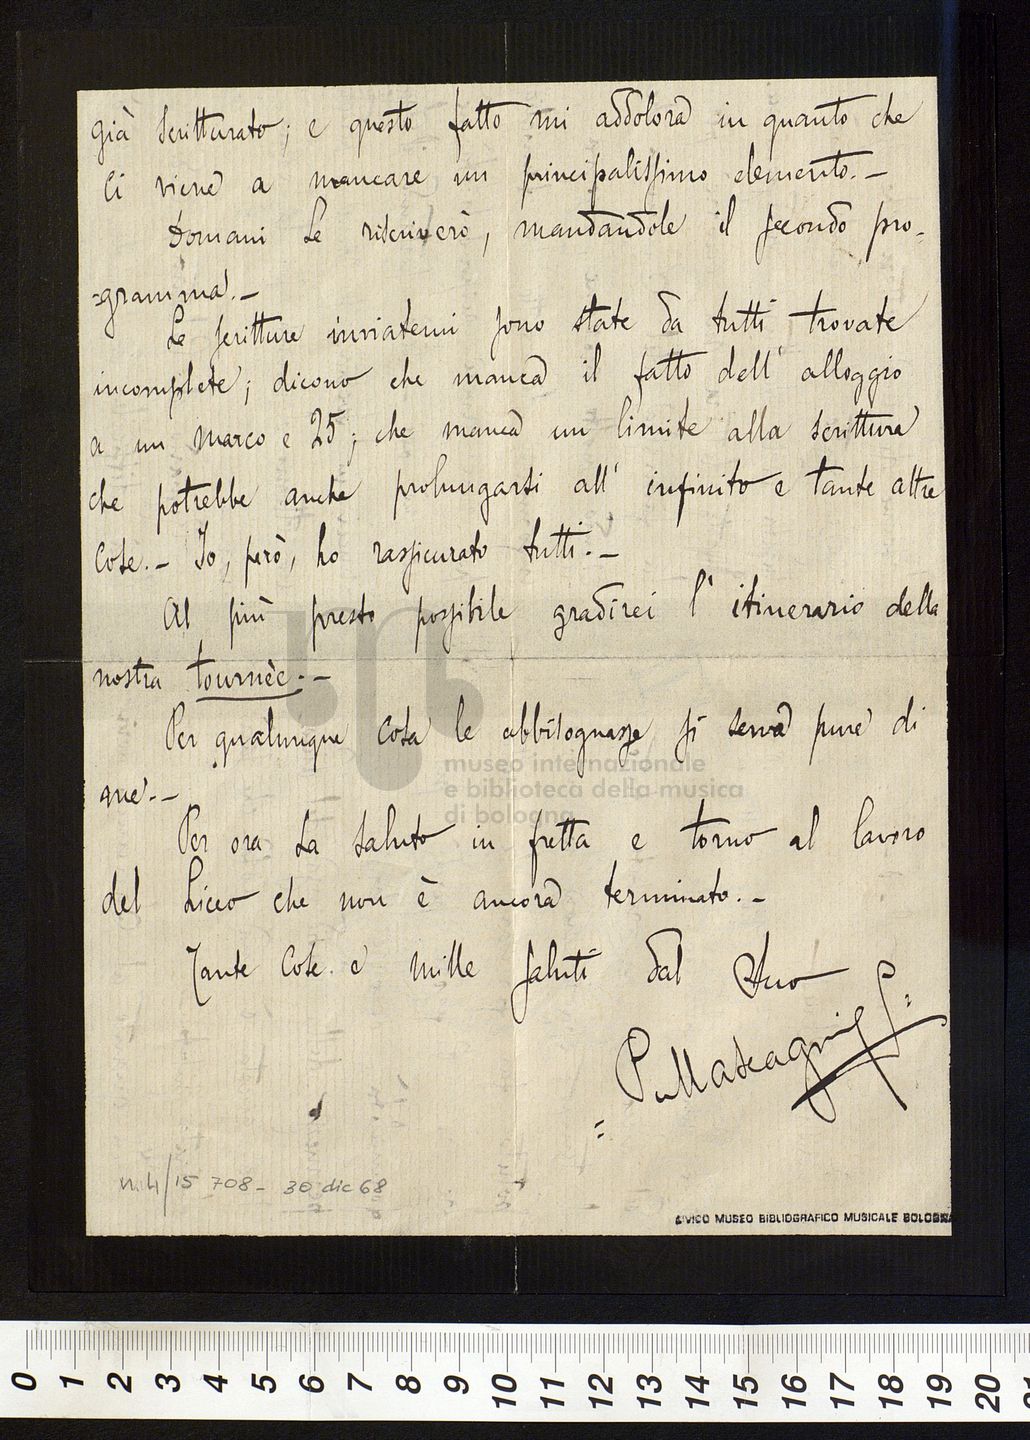 già scritturato; e questo fatto mi addolora in quanto che
ci viene a mancare un principalissimo elemento. –
Domani Le riscriverò, mandandole il secondo pro-
=gramma. –
Le scritture inviatemi sono state da tutti trovate
incomplete; dicono che manca il fatto dell'alloggio
a un marco e 25; che manca un limite alla scrittura
che potrebbe anche prolungarsi all'infinito e tante altre
cose. – Io, però, ho rassicurato tutti. –
Al più presto possibile gradirei l'itinerario della
nostra tournèe. –
Per qualunque cosa le abbisognasse si serva pure di
me. –
Per ora La saluto in fretta e torno al lavoro
del Liceo che non è ancora terminato. –
Tante cose e mille saluti dal Suo
P. Mascagni
n. 4/15 708 - 30 dic 68
CIVICO MUSEO BIBLIOGRAFICO MUSICALE BOLOGNA
museo internazionale
e biblioteca della musica
di bologna
0 1 2 3 4 5 6 7 8 9 10 11 12 13 14 15 16 17 18 19 20 21